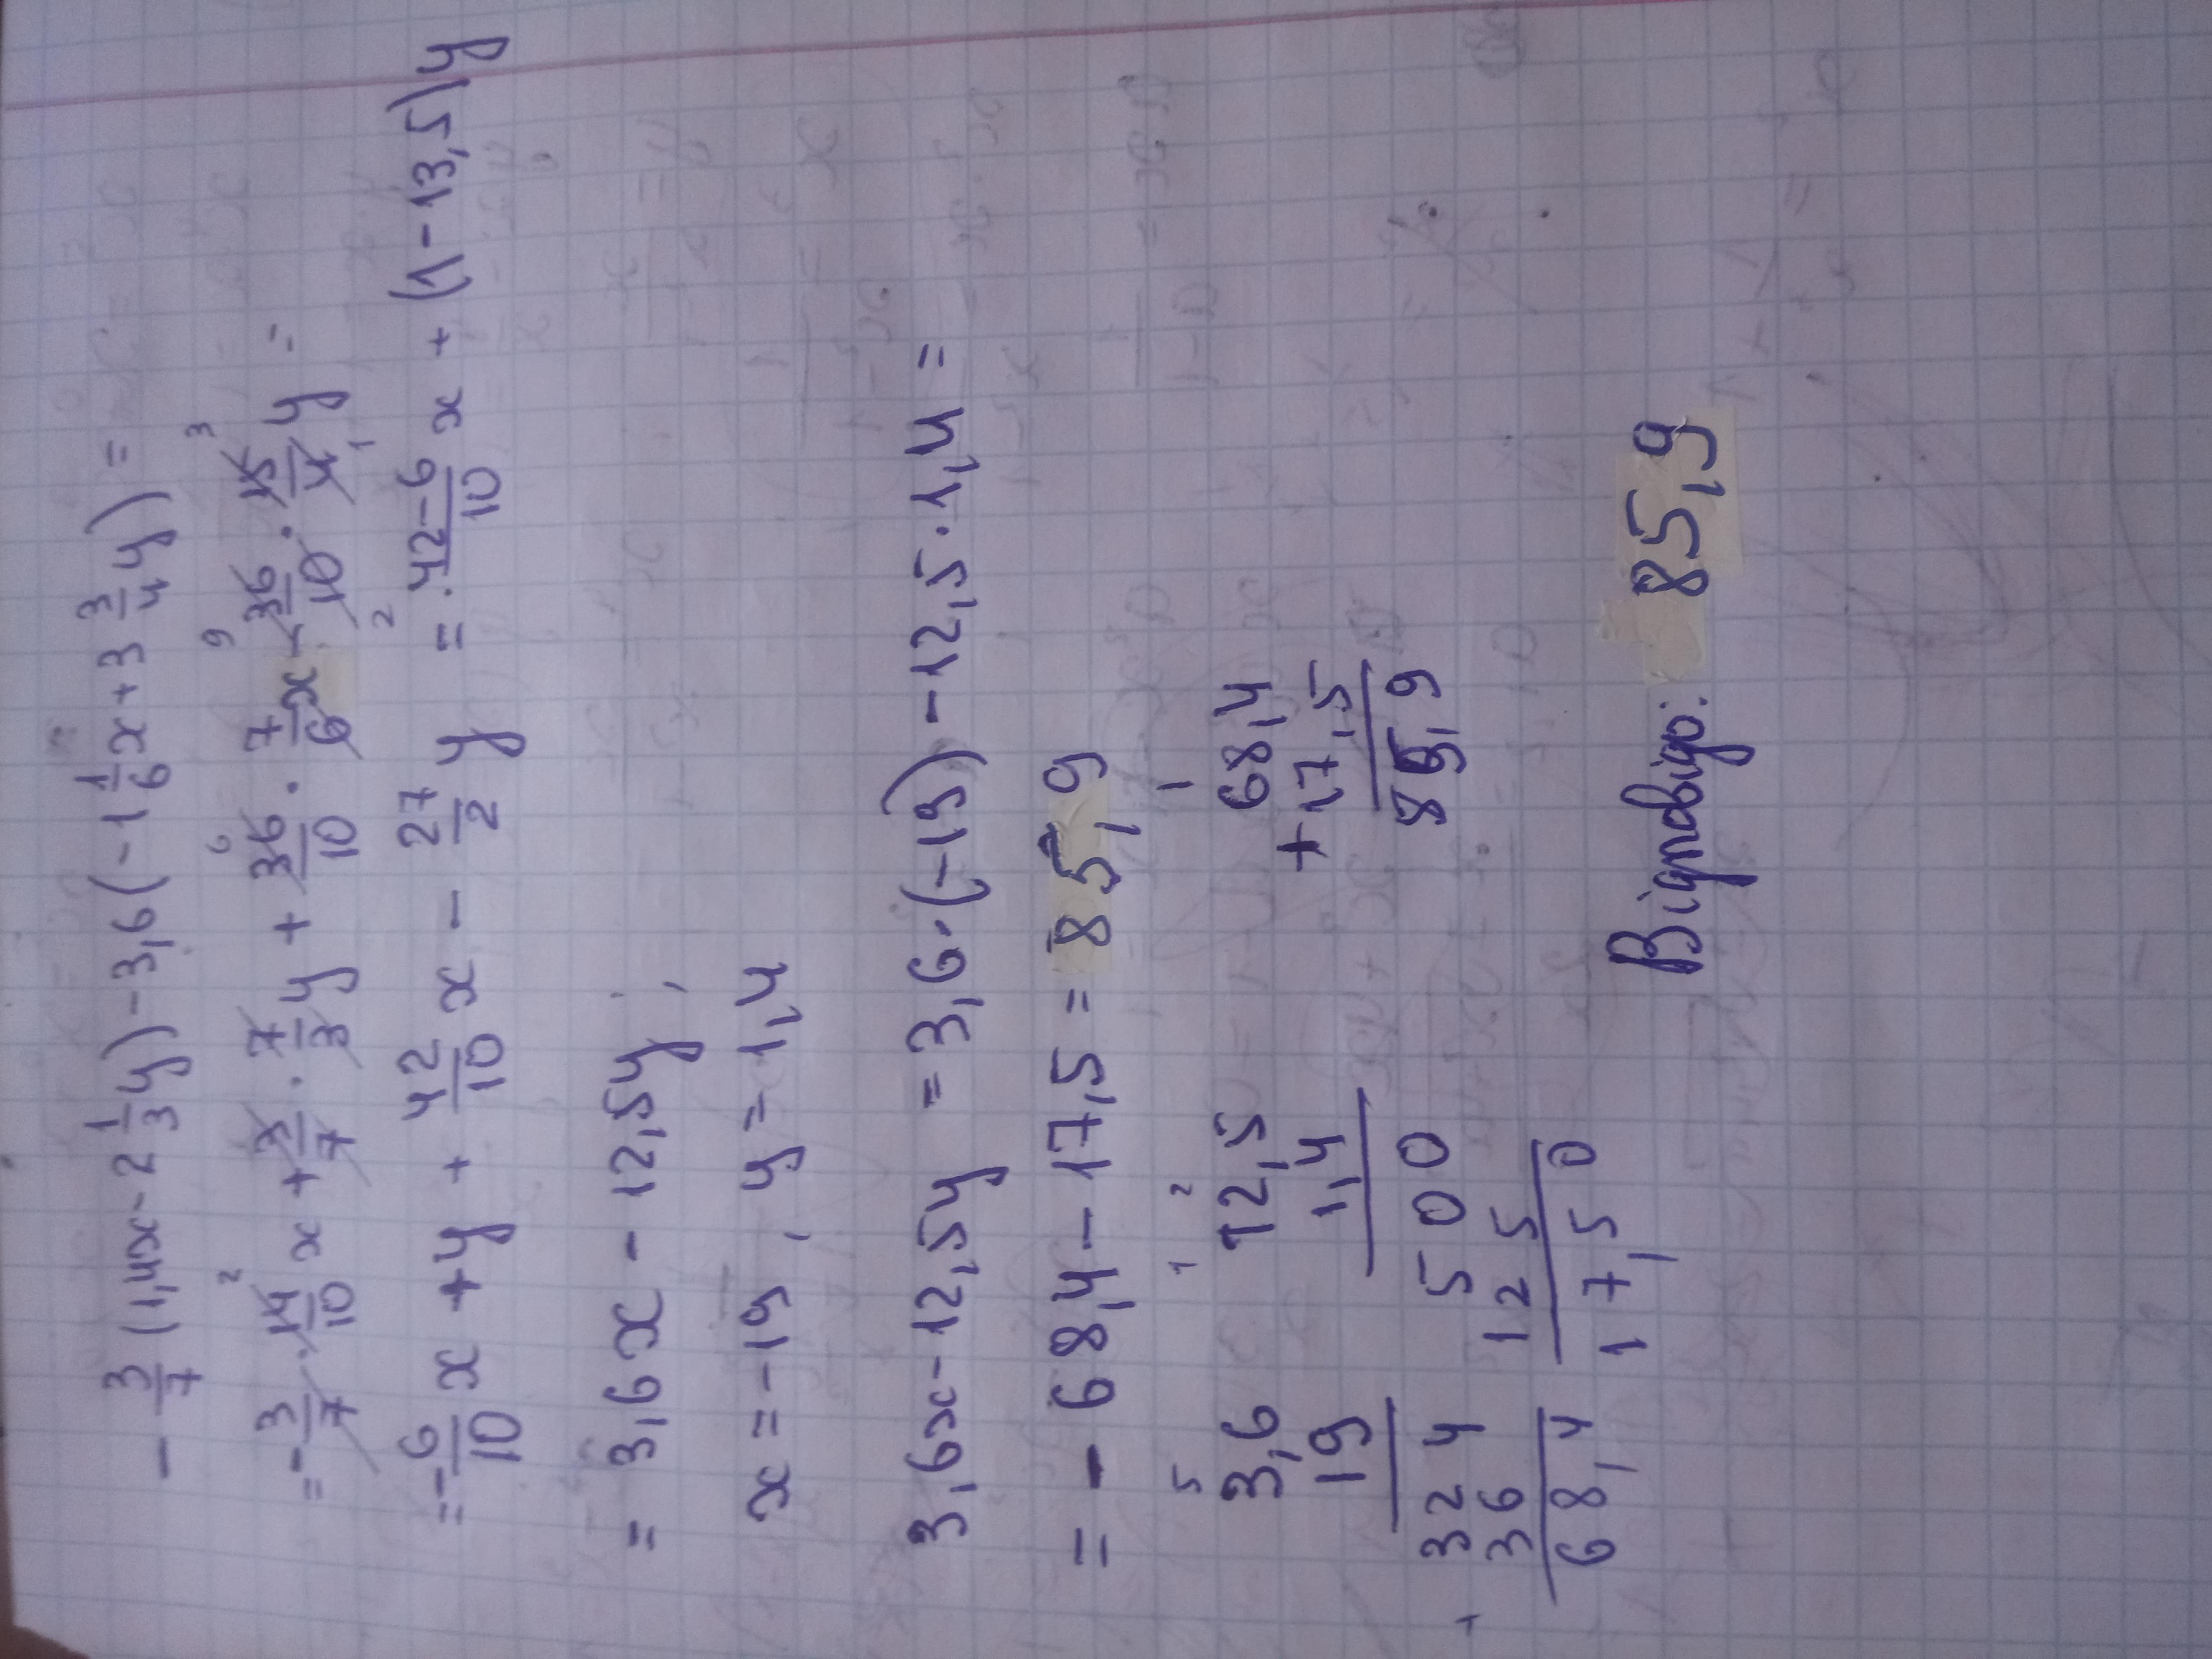 - 3/7 (1,4x - 2 1/3 y) - 3,6 (-1 1/6 x + 3 3/4 y) =
= - 3/7 · 14/10 x + 3/7 · 7/3 y + 36/10 · 7/6 x - 36/10 · 15/4 y =
= - 6/10 x + y + 42/10 x - 27/2 y = 42-6/10 x + (1 - 13,5) y
= 3,6x - 12,5y ;
x = -19 , y = 1,4
3,6x - 12,5y = 3,6 · (-19) - 12,5 · 1,4 =
= - 68,4 - 17,5 = 85,9
5 1 2 1
3,6 12,5 68,4
19 1,4 + 17,5
324 500 85,9
+ 36 125
68,4 17,50
Відповідь: 85,9